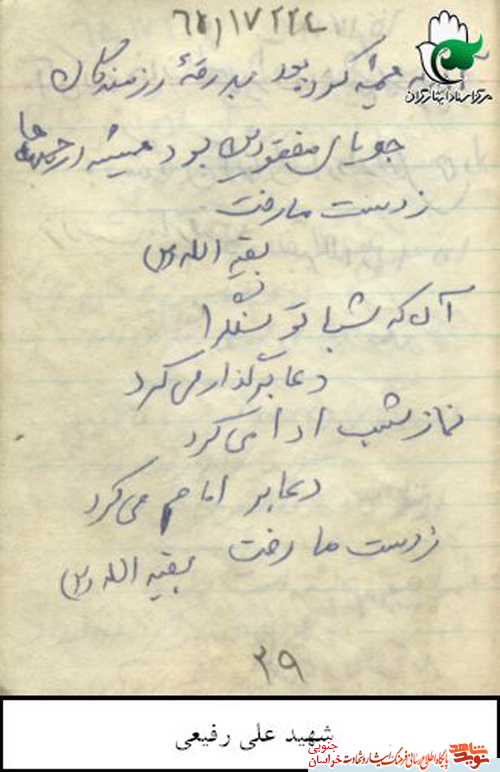 مرکز اسناد ایثارگران
آن که همیشه گرد بود بدرقهٔ رزمندگان
جویای مفقودین بود همیشه از جبهه‌ها
ز دست ما رفت
بقیه الله
آن که شبها تو سنگرا
دعا برگذار می کرد
نماز شب ادا می کرد
دعا بر امام می کرد
ز دست ما رفت بقیه الله
۳۹
شهید علی رفیعی
نوید شاهد
پایگاه اطلاع رسانی فرهنگ ایثار و شهادت
خراسان جنوبی